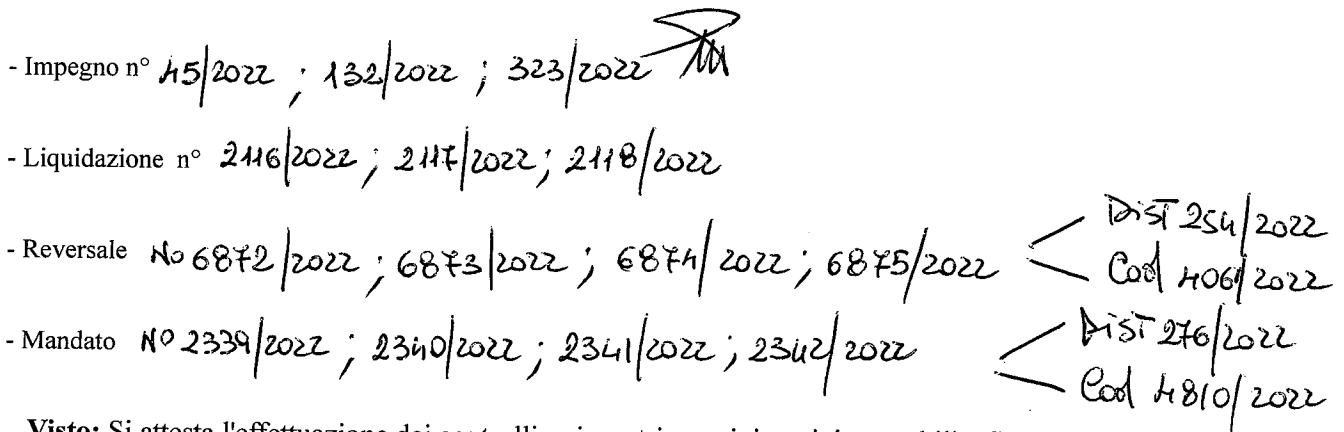 - Impegno n° 45/2022 ; 132/2022 ; 323/2022
- Liquidazione n° 2116/2022 ; 2117/2022 ; 2118/2022
- Reversale No 6872/2022 ; 6873/2022 ; 6874/2022 ; 6875/2022
Dist 254/2022
Cod 4061/2022
- Mandato No 2339/2022 ; 2340/2022 ; 2341/2022 ; 2342/2022
Dist 276/2022
Cod 4810/2022
Visto: Si attesta l'effettuazione dei